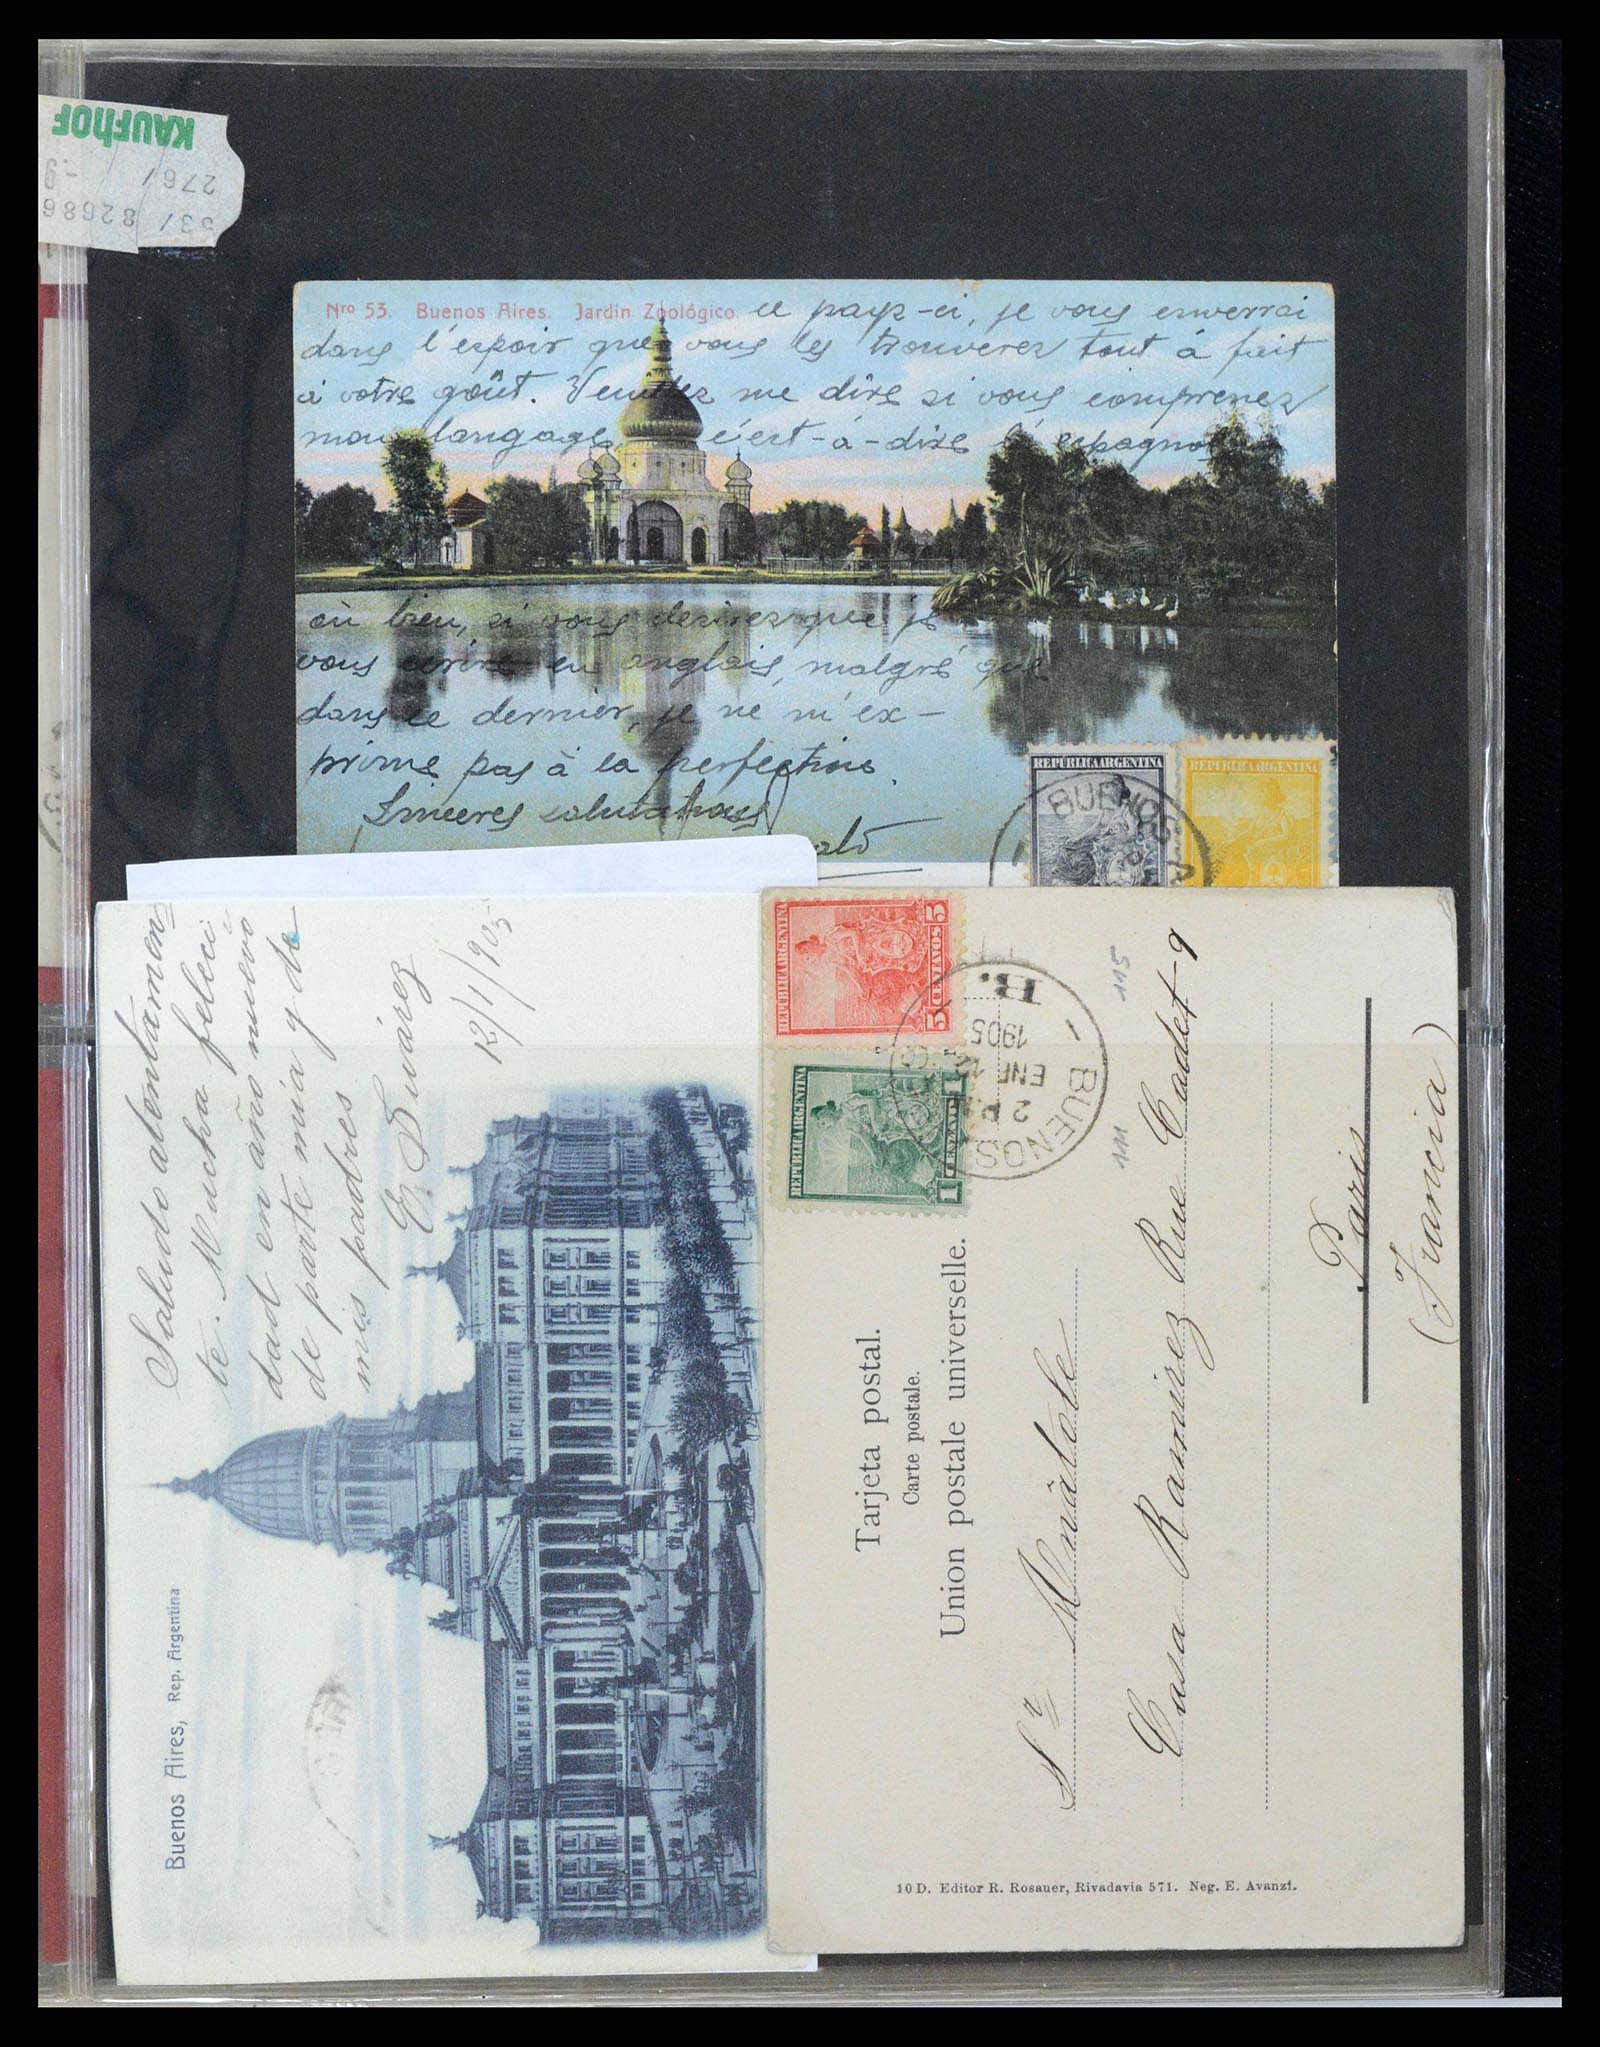 KAUFHOF
2761 -.9
82686
Nro 53. Buenos Aires. Jardin Zoológico.
ce pays-ci, je vous enverrai
dans l'espoir que vous les trouverez tout à fait
à votre goût. Veuillez me dire si vous comprenez
mon langage, c'est-à-dire l'espagnol
ou bien, si vous desirez que je
vous écrive en anglais, malgré que
dans ce dernier, je ne m'ex-
prime pas à la perfection.
Sinceres salutations
REPÚBLICA ARGENTINA
REPÚBLICA ARGENTINA
BUENOS A
Saludo atentamen
te. Mucha felici
dad en año nuevo
de parte mía y de
mis padres
E Suárez
12/1/905
Buenos Aires, Rep. Argentina
REPÚBLICA ARGENTINA
5 CENTAVOS 5
REPÚBLICA ARGENTINA
1 CENTAVO 1
BUENOS
B.
2 P.
ENE 12
1905
115
111
Tarjeta postal.
Carte postale.
Union postale universelle.
Sr
Casa Ramirez Rue Cadet 9
Paris
(Francia)
10 D. Editor R. Rosauer, Rivadavia 571. Neg. E. Avanzi.